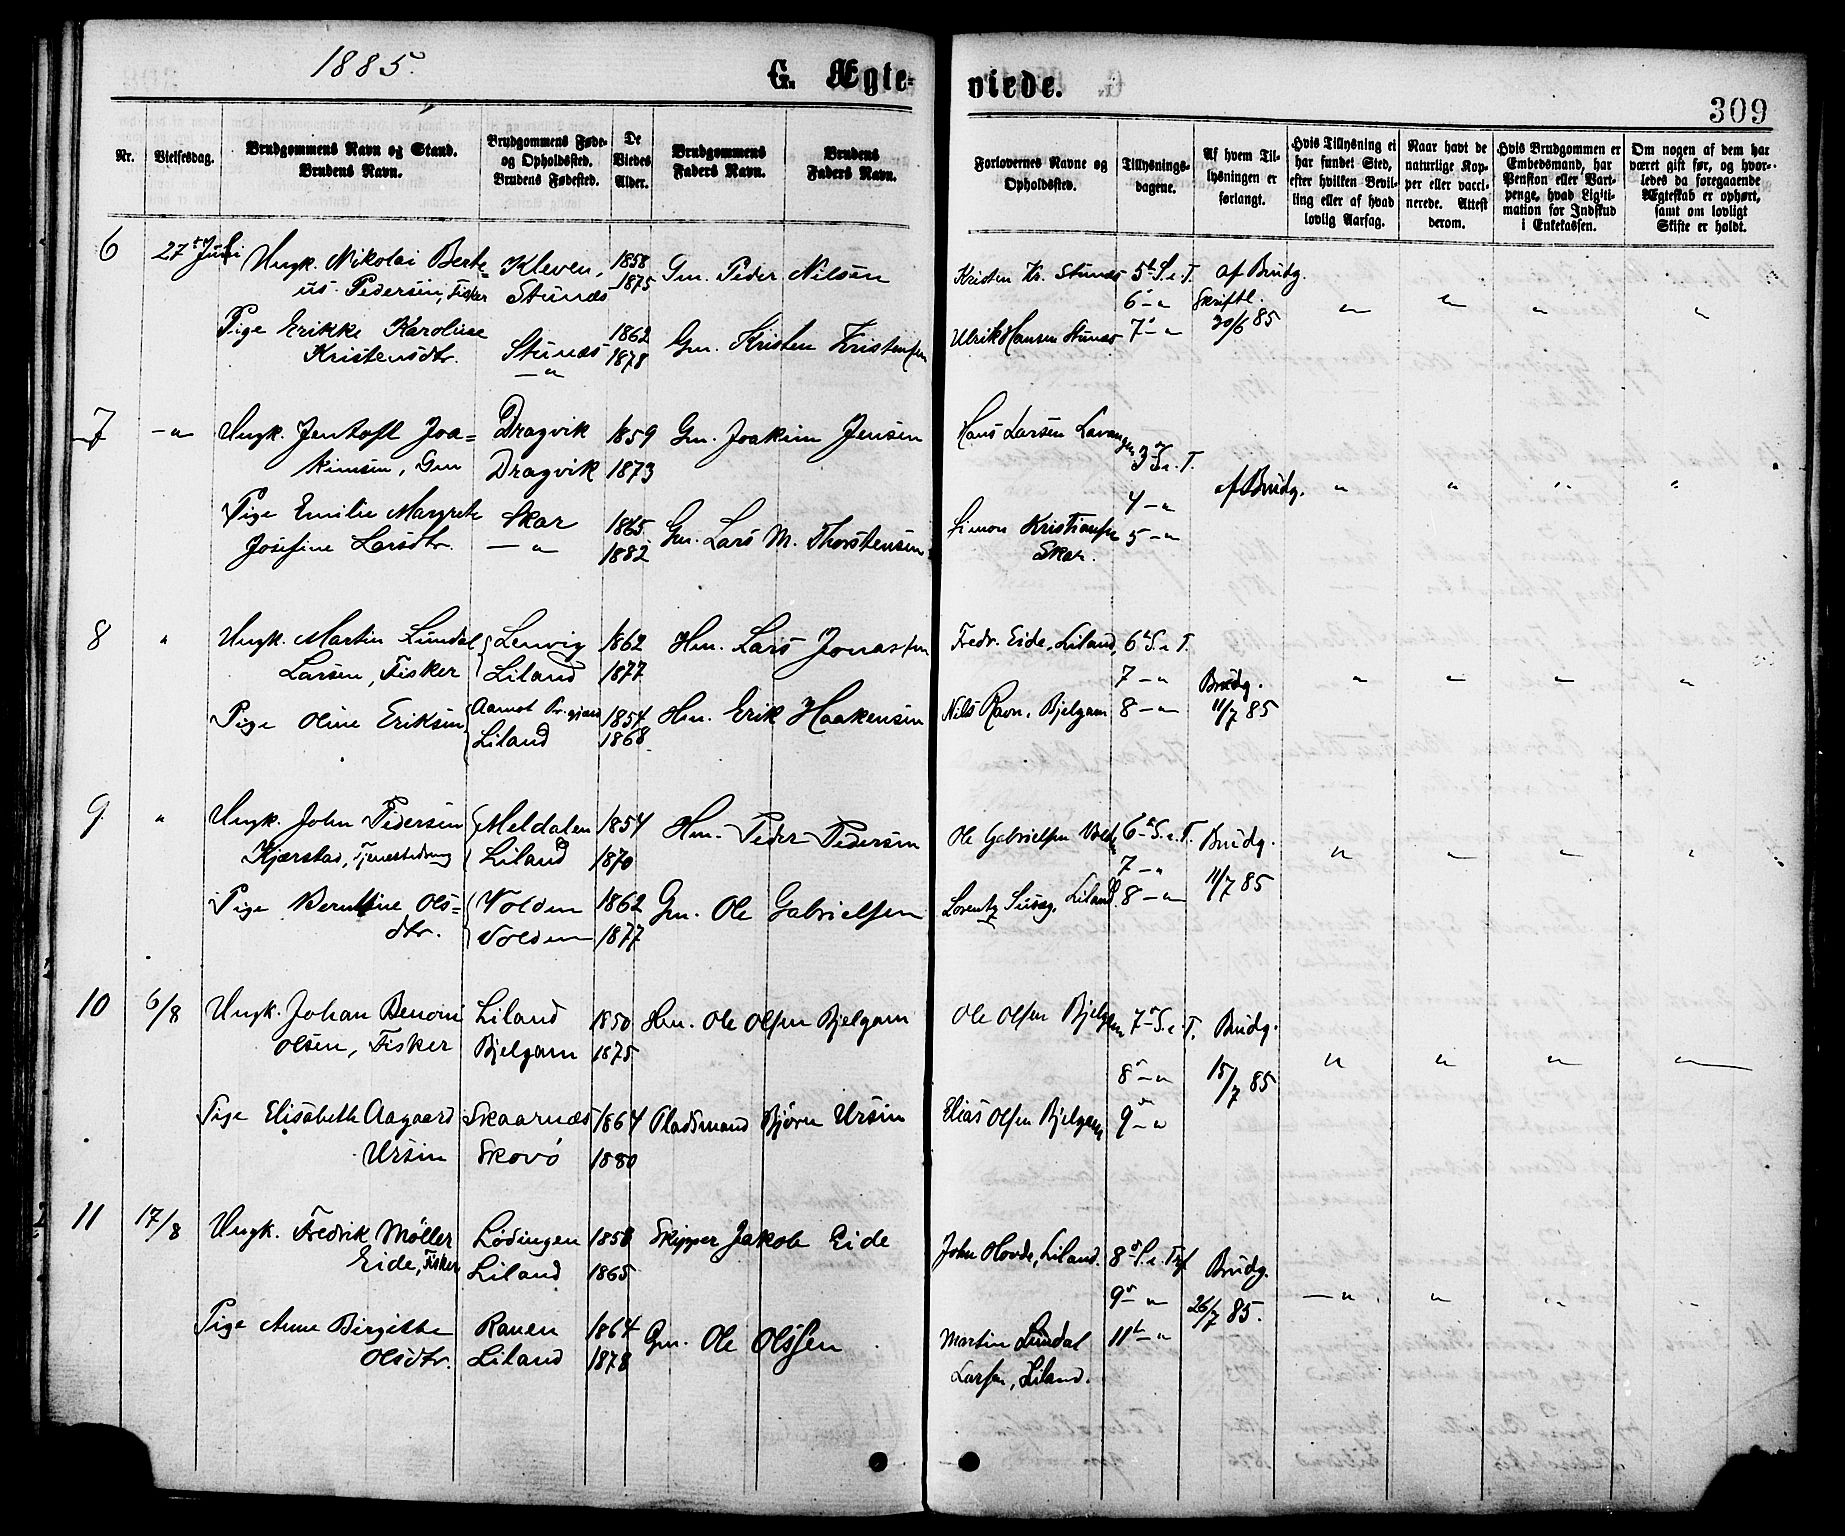 1885.
G. Ægteviede.
309
Nr.
Vielsesdag.
Brudgommens Navn og Stand.
Brudens Navn.
Brudgommens Føde-
og Opholdssted.
Brudens Fødested.
De
Viedes
Alder.
Brudgommens
Faders Navn.
Brudens
Faders Navn.
Forlovernes Navne og
Opholdssted.
Tillysnings-
dagene.
Af hvem Til-
lysningen er
forlangt.
Hvis Tillysning ei
har fundet Sted,
efter hvilken Bevil-
ling eller af hvad
lovlig Aarsag.
Naar havt de
naturlige Kop-
per eller vacci-
nerede. Attest
derom.
Hvis Brudgommen er
Embedsmand, har
Pension eller Vart-
penge, hvad Ligiti-
mation for Indskud
i Enkekassen.
Om nogen af dem har
været gift før, og hvor-
ledes da foregaaende
Ægteskab er ophørt,
samt om lovligt
Skifte er holdt.
6 27t Juli Ungk. Nikolai Bert- Kleven, 1858 Gm. Peder Nilsen Kristen Kr. Stunæs 5te S. e. T. af Brudg.
us Pedersen, Fisker Stunæs 1875 6 – " Skriftl.
Pige Erikke Karoline Stunæs 1862 Gm. Kristen Kristensen Ulrik Hansen Stunæs 7 – " 30/6 85 " " " "
Kristensdtr. – " 1878
7 – " Ungk. Jentoft Joa- Dragvik 1859 Gm. Joakim Jensen Hans Larsen Lavangen 3 S. e. T.
kimsen, Gm Dragvik 1873 4 – " af Brudg. " " " "
Pige Emilie Margrete Skar 1865 Gm. Lars M. Thorstensen Simon Kristiansen 5 – "
Josefine Larsdtr. – " 1882 Skar.
8 " Ungk. Martin Lundal Lenvig 1862 Hm. Lars Jonassen Fredr. Eide, Liland, 6 S. e. T.
Larsen, Fisker Liland 1877 7 – " Brudg. " " " "
Pige Oline Eriksen Aamot Pr.gjæld 1854 Hm. Erik Haakensen Nils Ravn, Bjelgam 8 – " 11/7 85
Liland 1868
9 " Ungk. John Pedersen Meldalen 1854 Hm. Peder Pedersen Ole Gabrielsen Volden 6 S. e. T. Brudg.
Kjærstad, Tjenestedreng Liland 1870 7 – " " " " "
Pige Berntine Ols- Volden 1862 Gm. Ole Gabrielsen Lorentz Liland 8 – " 11/7 85
dtr. Volden 1877
10 6/8 Ungk. Johan Benoni Liland 1850 Hm. Ole Olsen Bjelgam Ole Olsen Bjelgam 7 S. e. T. Brudg.
Olsen, Fisker Bjelgam 1875 8 – " 15/7 85 " " " "
Pige Elisabeth Aagaard Skaarnæs 1864 Pladsmand Bjørn Ursin Elias Olsen Bjelgam 9 – "
Ursin Skovø 1880
11 17/8 Ungk. Fredrik Møller Lødingen 1850 Skipper Jakob Eide John Hovde, Liland. 8 S. e. Tr. Brudg.
Eide, Fisker Liland 1865 9 – " 26/7 85. – " " " "
Pige Anne Birgitte Ranen 1864 Gm. Ole Olssen Martin Lundal 11te – "
Olsdtr. Liland 1878 Larsen, Liland.